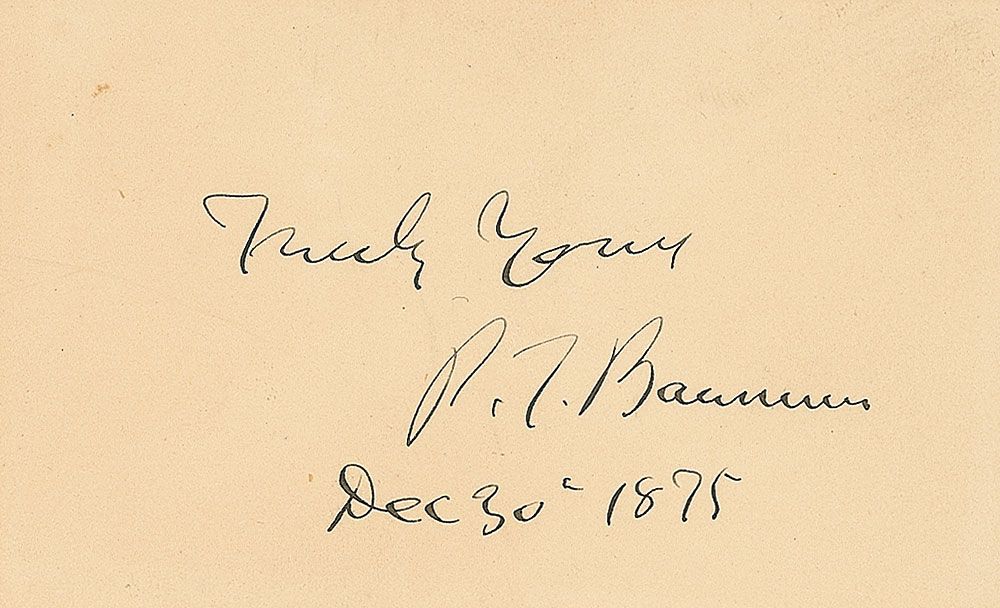 Truly Yours
P. T. Barnum
Dec 30 1875